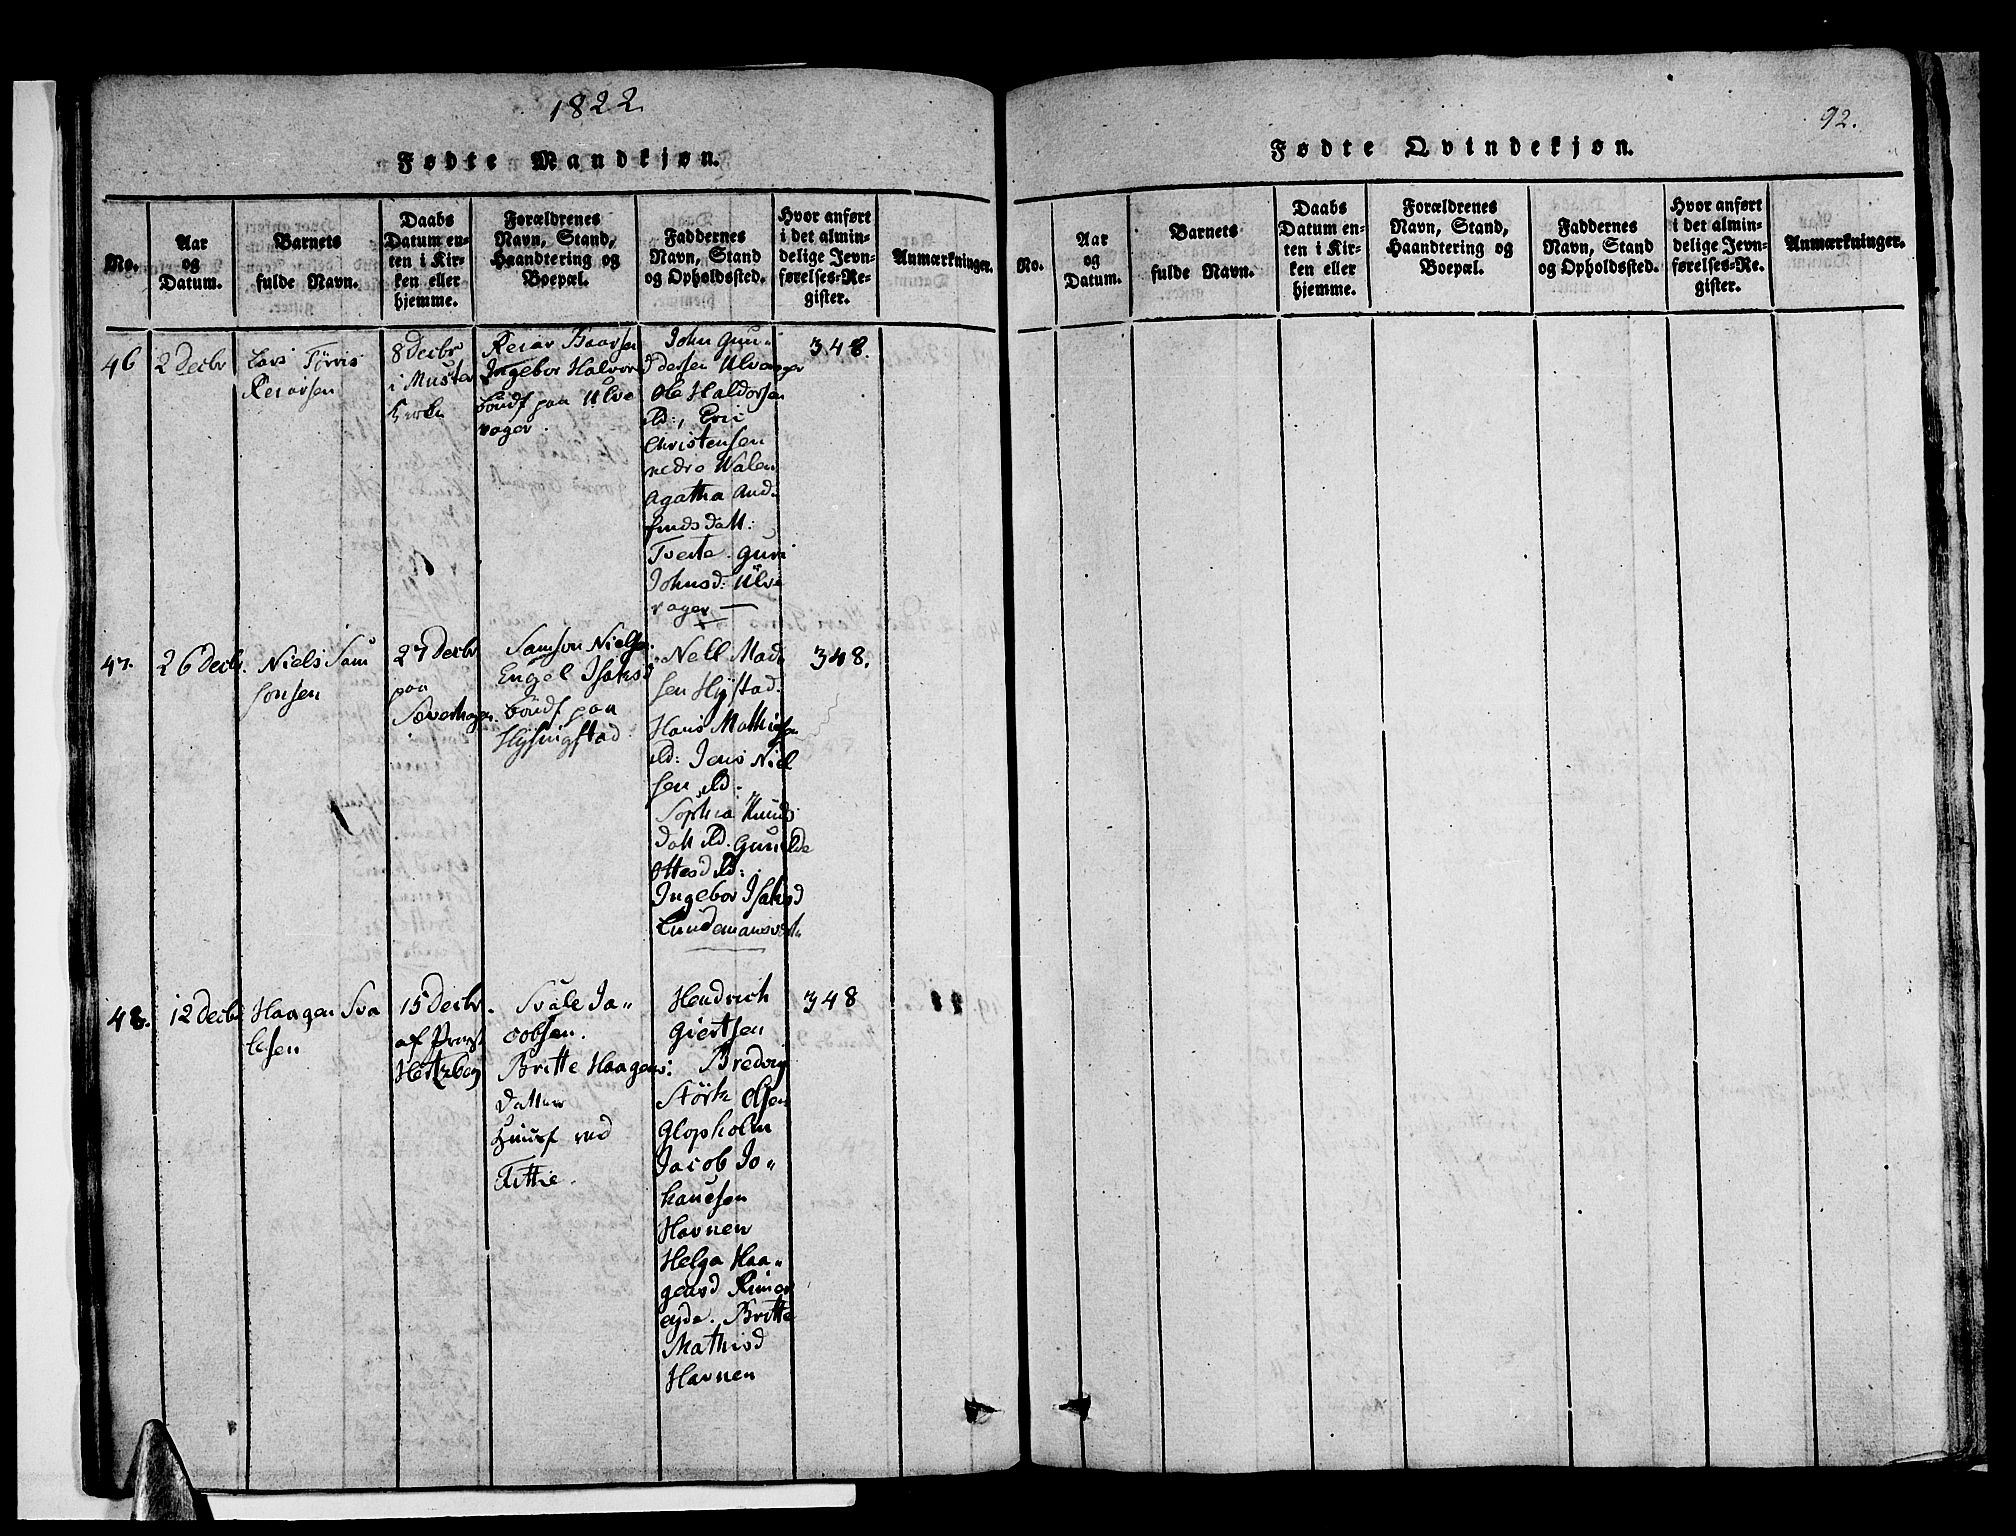 1822
Fødte Mandkjøn.
No.
Aar
og
Datum.
Barnets
fulde Navn.
Daabs
Datum en-
ten i Kir-
ken eller
hjemme.
Forældrenes
Navn, Stand,
Haandtering og
Boepæl.
Faddernes
Navn, Stand
og Opholdssted.
Hvor anført
i det almin-
delige Jevn-
førelses-Re-
gister.
Anmærkninger.
46
2 Decbr
Lars
Reiarsen
8 Decbr
i Muster
Kirke
Reiar Baarsen
Ingebor Halvors
paa Ulve
vager.
John Gun-
dersen Ulvevager
Ole Haldorsen
ibd:, Eric
Christensen
nedre Walen
Agatha And-
finds datt:
Tveite. Guri
Johnsd: Ulve
vager —
348.
47.
26 Decbr.
Niels Sam
sonsen
27 Decbr
paa
Samson Nielse.
Engel Isaksd
paa
Hysingstad
Nell Mad-
sen Hystad.
Hans Mathiesen
ibd: Jens Niel
sen ibd.
Sophia Knuds
dott ibd. Gunilde
Ottesd ibd:
Ingebor Isaksd
348.
48.
12 Decbr
Haagen Sva
lesen
15 Decbr.
af Provst
Hertzberg
Svale Ja-
cobsen.
Britte Haagens:
datter
Huusf ved
Fittie.
Hendrich
Giertsen
Bredvig
Størk Olsen
Glopholm
Jacob Jo-
hanesen
Havnen
Helga Haa-
gensd Rimer
eyde. Britte
Mathisd
Havnen
348
92.
Fødte Qvindekjøn.
No.
Aar
og
Datum.
Barnets
fulde Navn.
Daabs
Datum en-
ten i Kir-
ken eller
hjemme.
Forældrenes
Navn, Stand,
Haandtering og
Boepæl.
Faddernes
Navn, Stand
og Opholdssted.
Hvor anført
i det almin-
delige Jevn-
førelses-Re-
gister.
Anmærkninger.